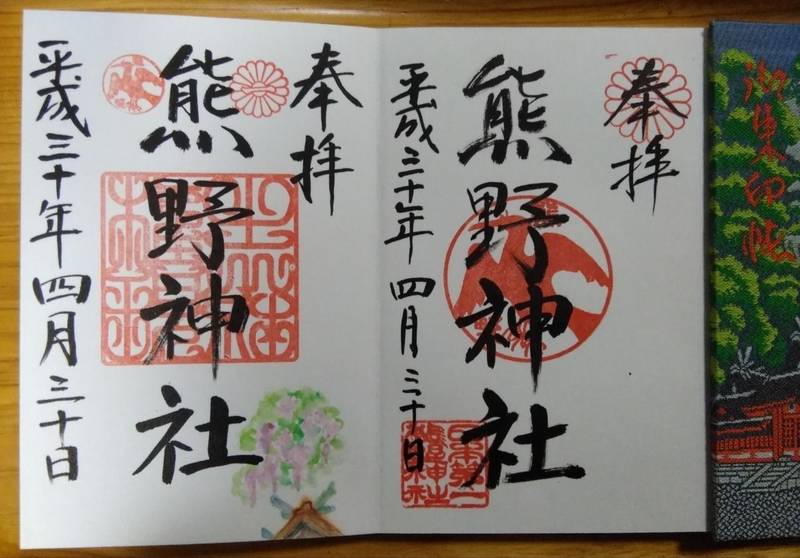 奉拝
熊野神社
平成三十年四月三十日
奉拝
熊野神社
平成三十年四月三十日
日本第一
御朱印帳